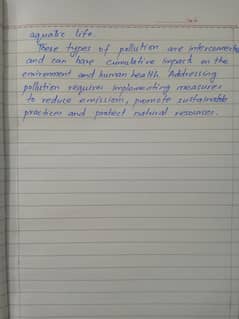 aquatic life.
These types of pollution are interconnected
and can have cumulative impact on the
environment and human health. Addressing
pollution requires implementing measures
to reduce emissions, promote sustainable
practices and protect natural resources.